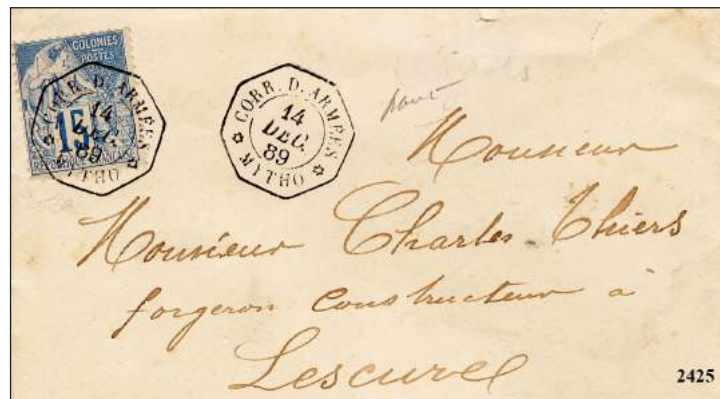 COLONIES
POSTES
15
REPUBLIQUE FRANCAISE
CORR. D. ARMÉES
14
DEC.
89
MYTHO
CORR. D. ARMÉES
14
DEC.
89
MYTHO
Monsieur
Monsieur Charles Thiers
forgeron constructeur à
Lescure
2425